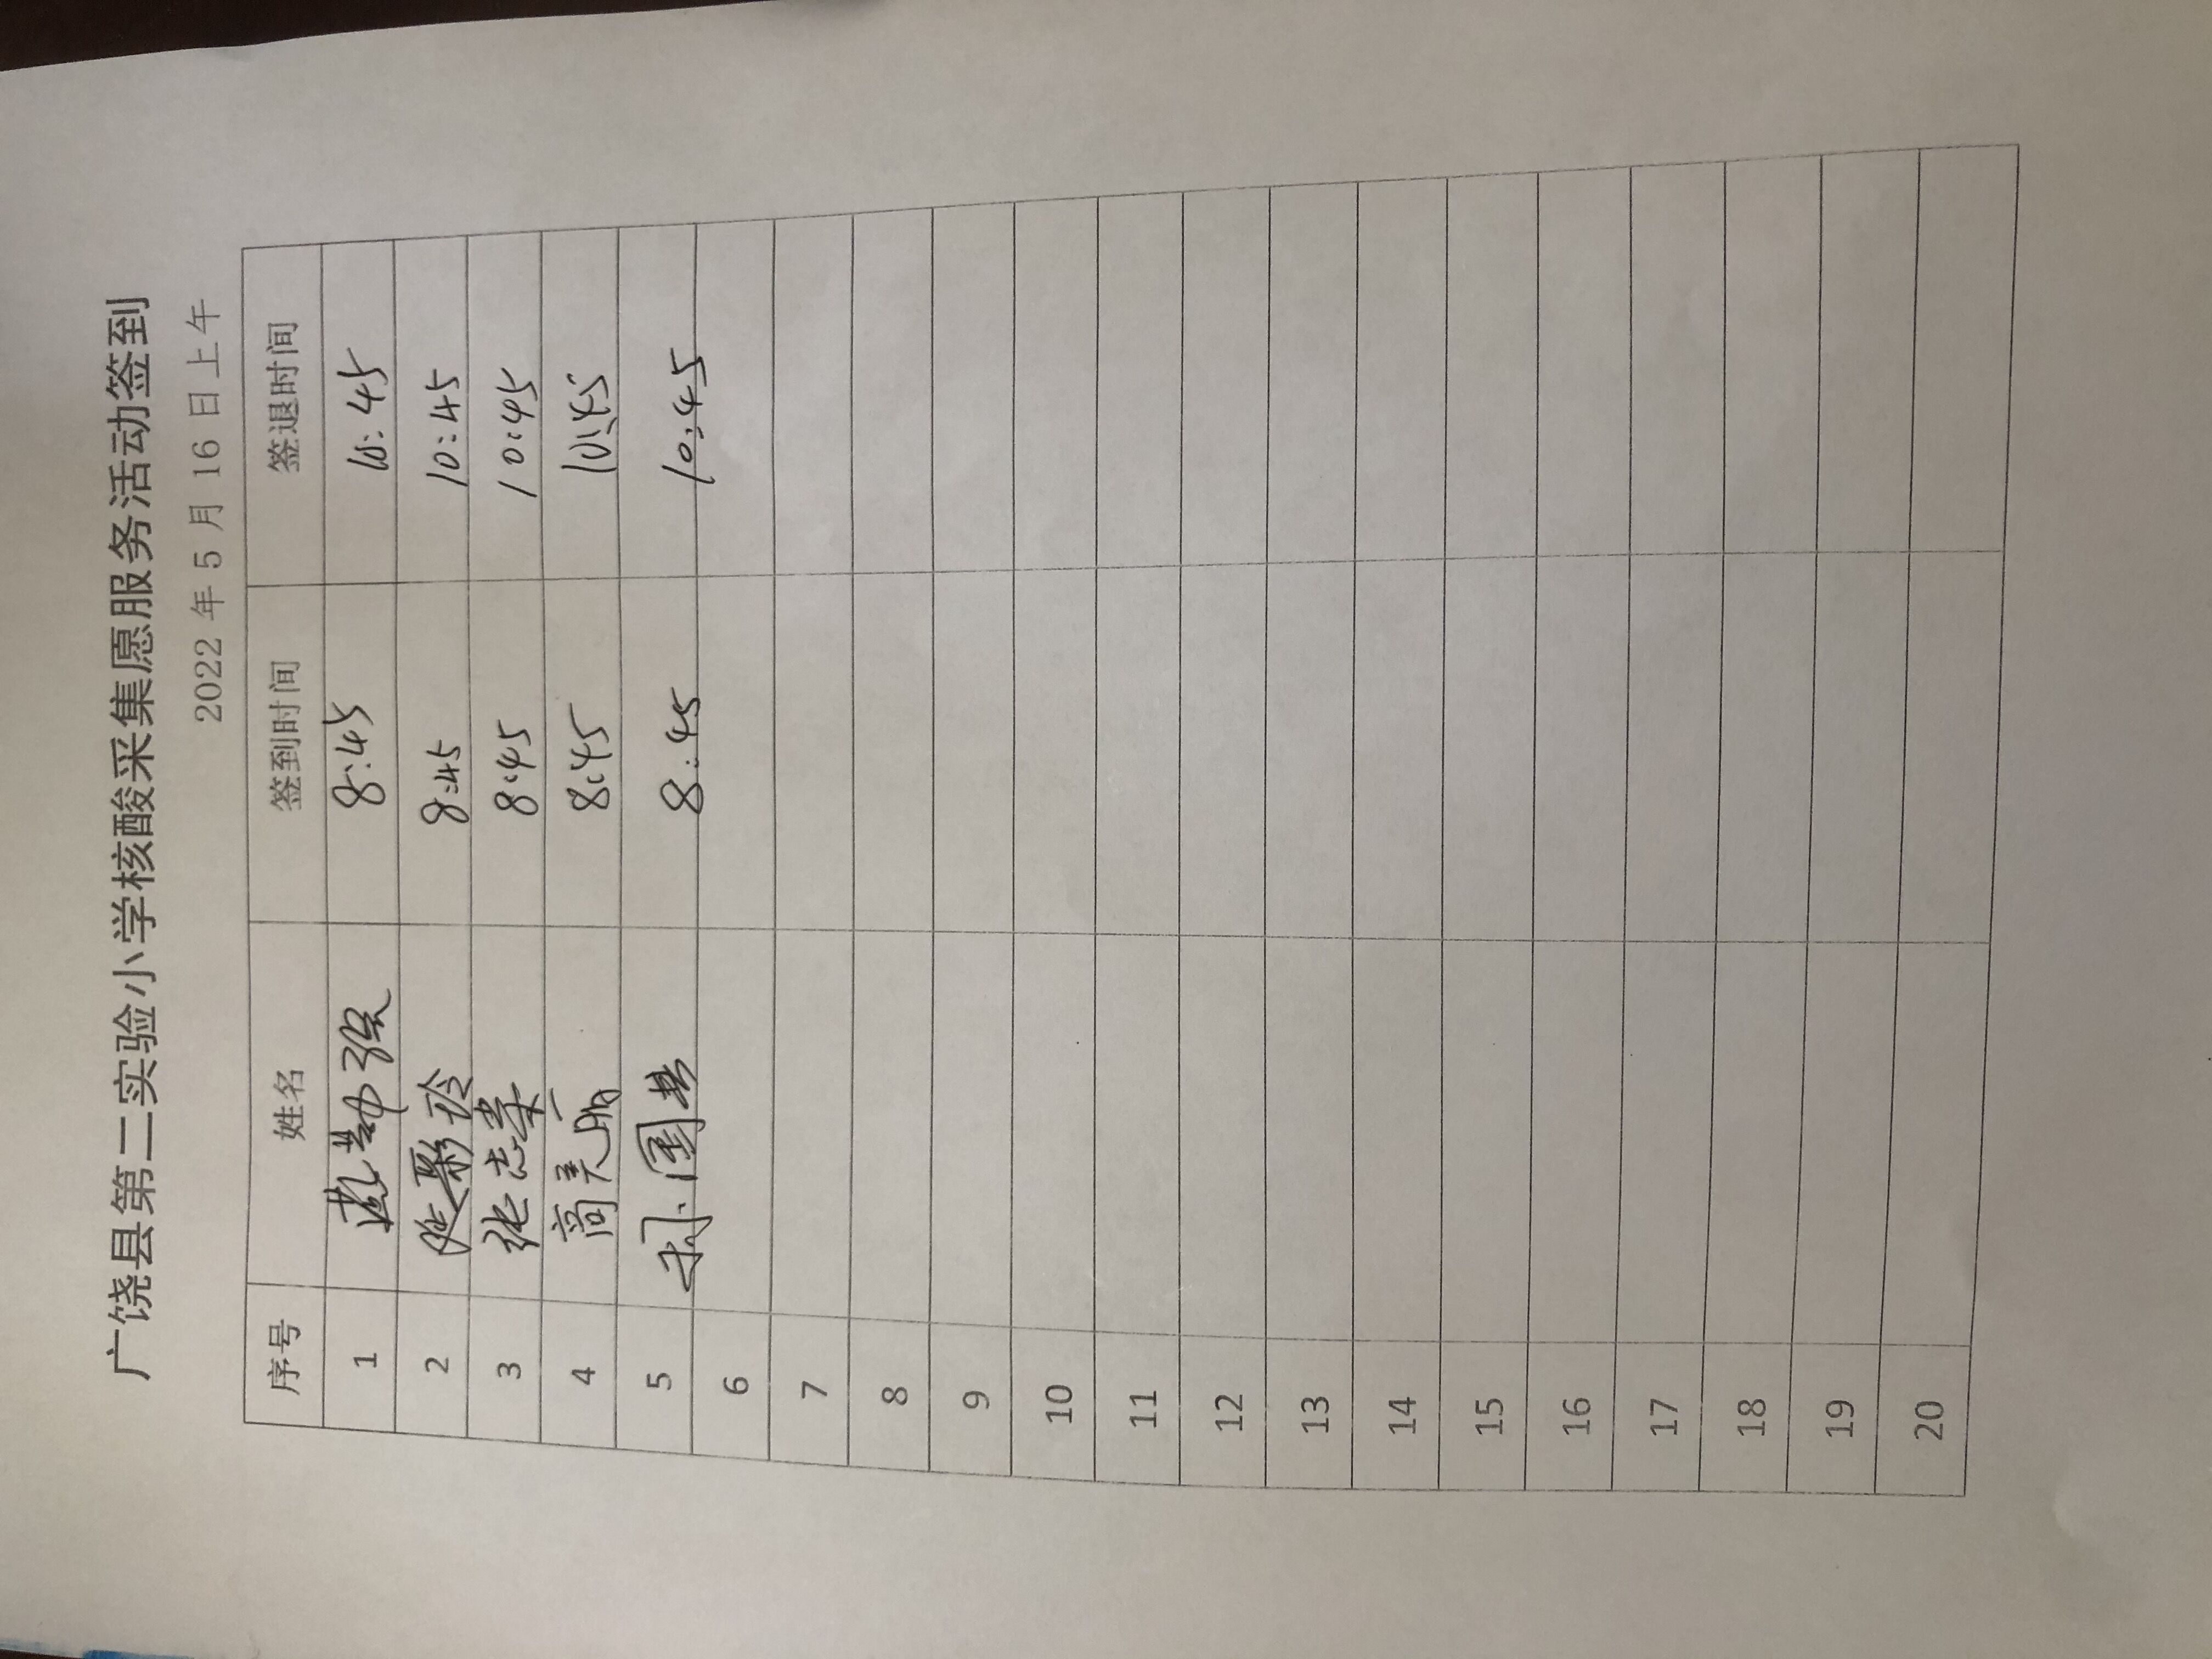 广饶县第二实验小学核酸采集愿服务活动签到
2022 年 5 月 16 日上午
序号 姓名 签到时间 签退时间
1 8:45 10:45
2 延彩玲 8:45 10:45
3 张志荣 8:45 10:45
4 高美丽 8:45 10:45
5 孙国 8:45 10:45
6
7
8
9
10
11
12
13
14
15
16
17
18
19
20